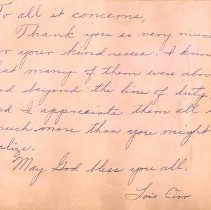 To all it concerns,
Thank you so very much
for your kindnesses. I know
that many of them were above
and beyond the line of duty
and I appreciate them all so
much more than you might
realize.
May God bless you all,
Lois Orr